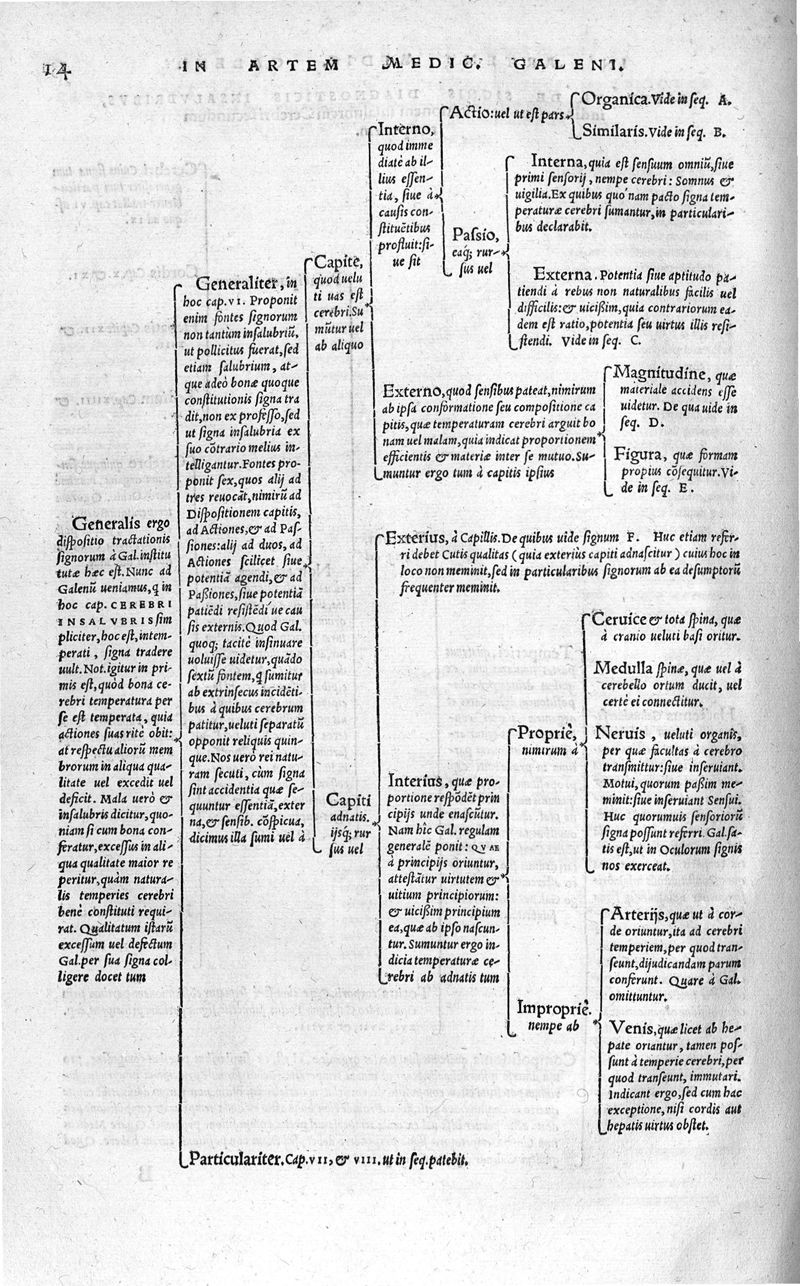 14 IN ARTEM MEDIC. GALENI.
Generalis ergo
dispositio tractationis
signorum à Gal. institu
tutæ hæc est. Nunc ad
Galenū ueniamus, q in
hoc cap. CEREBRI
INSALVBRIS sim
pliciter, hoc est, intem-
perati, signa tradere
uult. Not. igitur in pri-
mis est, quòd bona ce-
rebri temperatura per
se est temperata, quia
actiones suas ritè obit:
at respectu aliorū mem
brorum in aliqua qua-
litate uel excedit uel
deficit. Mala uerò &
insalubris dicitur, quo-
niam si cum bona con-
feratur, excessus in ali-
qua qualitate maior re
peritur, quàm natura-
lis temperies cerebri
benè constituti requi-
rat. Qualitatum istarū
excessum uel defectum
Gal. per sua signa col-
ligere docet tum
Generaliter, in
hoc cap. VI. Proponit
enim fontes signorum
non tantùm insalubriū,
ut pollicitus fuerat, sed
etiam salubrium, at-
que adeò bonæ quoque
constitutionis signa tra
dit, non ex professo, sed
ut signa insalubria ex
suo cōtrario melius in-
telligantur. Fontes pro-
ponit sex, quos alij ad
tres reuocāt, nimirū ad
Dispositionem capitis,
ad Actiones, & ad Pas-
siones: alij ad duos, ad
Actiones scilicet siue
potentiā agendi, & ad
Paßiones, siue potentiā
patiēdi resistēdi ue cau
sis externis. Quod Gal.
quoq; tacitè insinuare
uoluisse uidetur, quādo
sextū fontem, q sumitur
ab extrinsecus incidēti-
bus à quibus cerebrum
patitur, ueluti separatū
opponit reliquis quin-
que. Nos uerò rei natu-
ram secuti, cùm signa
sint accidentia quæ se-
quuntur essentiā, exter
na, & sensib. cōspicua,
dicimus illa sumi uel à
Capite,
quod uelu
ti uas est
cerebri. Su
mūtur uel
ab aliquo
Interno,
quod imme
diatè ab il-
lius essen-
tia, siue à
causis con-
stituētibus
profluit: si-
ue sit
Actio: uel ut est pars
Organica. Vide in seq. A.
Similaris. Vide in seq. B.
Passio,
eaq; rur-
sus uel
Interna, quia est sensuum omniū, siue
primi sensorij, nempe cerebri: Somnus &
uigilia. Ex quibus quo nam pacto signa tem-
peraturæ cerebri sumantur, in particulari-
bus declarabit.
Externa. Potentia siue aptitudo pa-
tiendi à rebus non naturalibus facilis uel
difficilis: & uicißim, quia contrariorum ea-
dem est ratio, potentia seu uirtus illis resi-
stendi. Vide in seq. C.
Externo, quod sensibus pateat, nimirum
ab ipsa conformatione seu compositione ca
pitis, quæ temperaturam cerebri arguit bo
nam uel malam, quia indicat proportionem
efficientis & materiæ inter se mutuo. Su-
muntur ergo tum à capitis ipsius
Magnitudine, quæ
materiale accidens esse
uidetur. De qua uide in
seq. D.
Figura, quæ formam
propius cōsequitur. Vi-
de in seq. E.
Capiti
adnatis.
ijsq; rur
sus uel
Exterius, à Capillis. De quibus uide signum F. Huc etiam refer-
ri debet Cutis qualitas (quia exterius capiti adnascitur) cuius hoc in
loco non meminit, sed in particularibus signorum ab ea desumptorū
frequenter meminit.
Interius, quæ pro-
portione respōdēt prin
cipijs unde enascūtur.
Nam hîc Gal. regulam
generalē ponit: QVAE
à principijs oriuntur,
attestātur uirtutem &
uitium principiorum:
& uicißim principium
ea, quæ ab ipso nascun-
tur. Sumuntur ergo in-
dicia temperaturæ ce-
rebri ab adnatis tum
Propriè,
nimirum à
Ceruice & tota spina, quæ
à cranio ueluti basi oritur.
Medulla spinæ, quæ uel à
cerebello ortum ducit, uel
certè ei connectitur.
Neruis, ueluti organis,
per quæ facultas à cerebro
transmittur: siue inseruiant.
Motui, quorum paßim me-
minit: siue inseruiant Sensui.
Huc quorumuis sensoriorū
signa possunt referri. Gal. sa-
tis est, ut in Oculorum signis
nos exerceat.
Impropriè.
nempe ab
Arterijs, quæ ut à cor-
de oriuntur, ita ad cerebri
temperiem, per quod tran-
seunt, dijudicandam parum
conferunt. Quare à Gal.
omittuntur.
Venis, quæ licet ab he-
pate oriantur, tamen pos-
sunt à temperie cerebri, per
quod transeunt, immutari.
Indicant ergo, sed cum hac
exceptione, nisi cordis aut
hepatis uirtus obstet.
Particulariter. Cap. VII, & VIII. ut in seq. patebit.